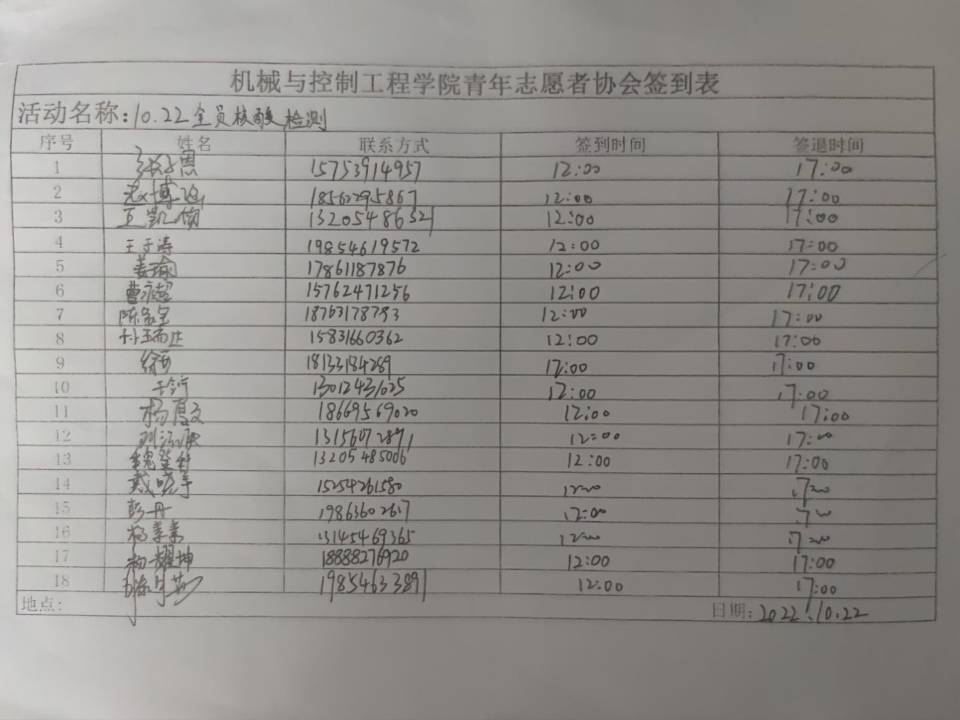 机械与控制工程学院青年志愿者协会签到表
活动名称:10.22全员核酸检测
序号 姓名 联系方式 签到时间 签退时间
1 15753914957 12:00 17:00
2 18562295867 12:00 17:00
3 王凯俊 13205486321 12:00 17:00
4 王子涛 19854619572 12:00 17:00
5 姜瑜 17861187876 12:00 17:00
6 曹 15762471256 12:00 17:00
7 陈 18763178793 12:00 17:00
8 15831660362 12:00 17:00
9 徐 18133184289 17:00 17:00
10 13012431025 12:00 17:00
11 杨 18669569020 12:00 17:00
12 刘 13156072871 12:00 17:00
13 13205485006 12:00 17:00
14 戴晓军 15254261580 12:00 17:00
15 彭丹 19863602617 12:00 17:00
16 杨 13145469365 12:00 17:00
17 杨耀坤 18888276920 12:00 17:00
18 19854633891 12:00 17:00
地点: 日期:2022.10.22